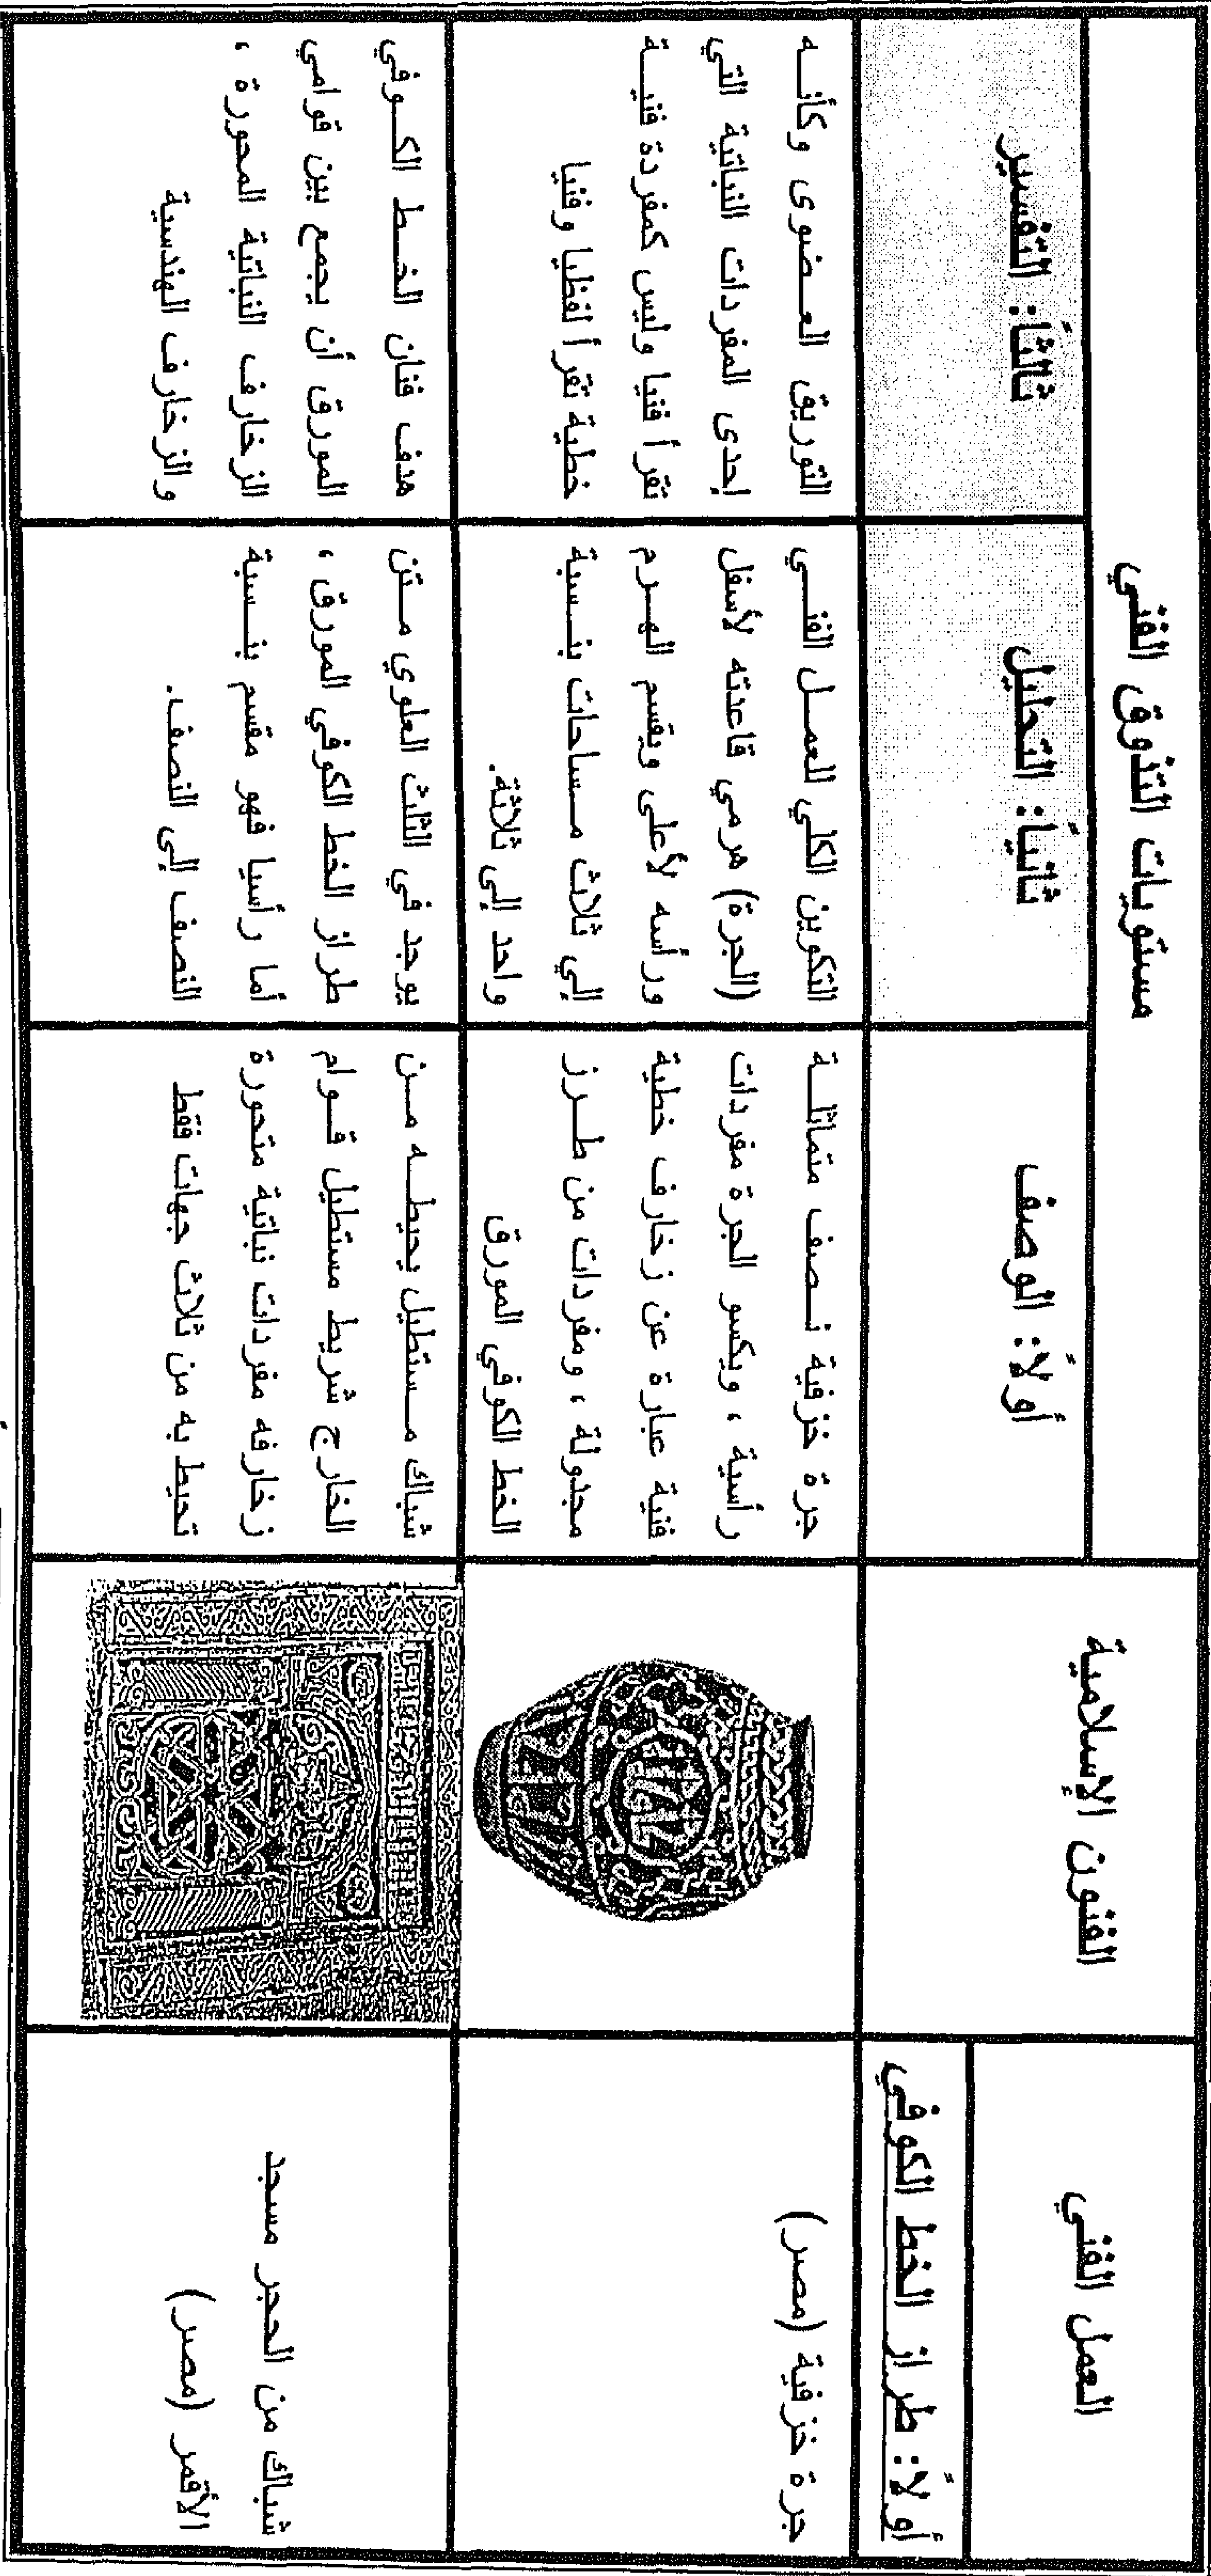 العمل الفني
الفنون الإسلامية
مستويات التذوق الفني
أولاً: طراز الخط الكوفي
أولاً: الوصف
ثانياً: التحليل
ثالثاً: التفسير
جرة خزفية (مصر)
جرة خزفية نصف متماثلة
رأسية ، ويكسو الجرة مفردات
فنية عبارة عن زخارف خطية
مجدولة ، ومفردات من طرز
الخط الكوفي المورق
التكوين الكلي للعمل الفني
(الجرة) هرمي قاعدته لأسفل
ورأسه لأعلى ويقسم الهرم
إلي ثلاث مساحات بنسبة
واحد إلى ثلاثة.
التوريق العضوى وكأنه
إحدى المفردات النباتية التي
تقرأ فنيا وليس كمفردة فنية
خطية تقرأ لفظيا وفنيا
شباك من الحجر مسجد
الأقمر (مصر)
شباك مستطيل يحيطه من
الخارج شريط مستطيل قوام
زخارفه مفردات نباتية متحورة
تحيط به من ثلاث جهات فقط
يوجد في الثلث العلوي متن
طراز الخط الكوفي المورق ،
أما رأسيا فهو مقسم بنسبة
النصف إلى النصف.
هدف فنان الخط الكوفي
المورق أن يجمع بين قوامي
الزخارف النباتية المحورة ،
والزخارف الهندسية